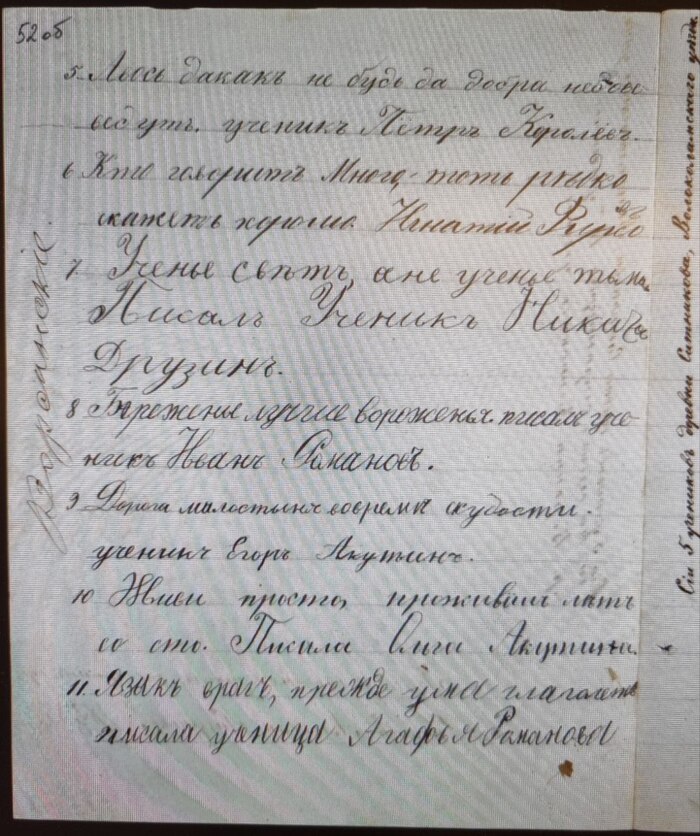 52 об
5. Авось да какъ не будь да добра недове
ѣдутъ. ученикъ Петръ Королевъ.
6 Кто говоритъ много, тотъ рѣдко
скажетъ хорошо. Игнатій
7 Ученье свѣтъ, а не ученье тьма.
Писалъ Ученикъ
Друзинъ.
8 Береженье лучше вороженья. писалъ уче
никъ Иванъ Романовъ.
9 Дорога малостыня вовремя скудости.
ученикъ Егоръ Акутинъ.
10 Живи просто, проживешь латъ
со сто. Писала Олга Акутина.
11. Языкъ врагъ, прежде ума глаголетъ
писала ученица Агафья Романова
Сіи 5 учениковъ деревни Ситникова, Волоколамскаго уѣзда.